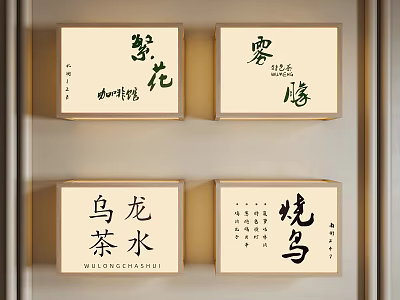 繁花
咖啡馆
雾朦
特色茶
WUMENG
乌龙
茶水
WULONGCHASHUI
烧鸟